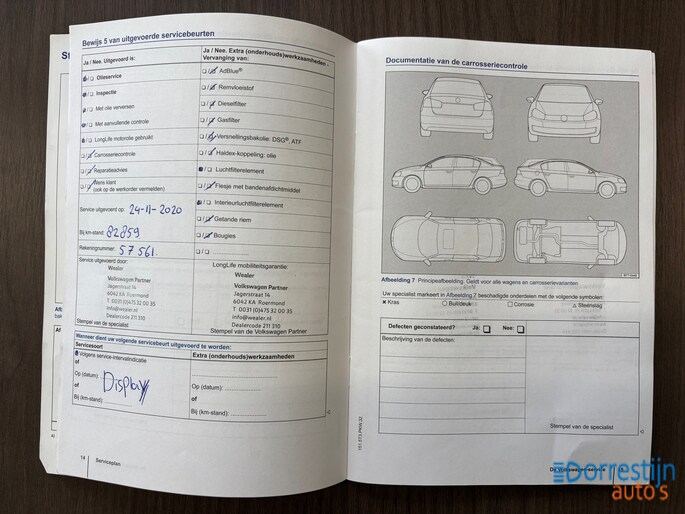 Bewijs 5 van uitgevoerde servicebeurten
Ja / Nee. Uitgevoerd is:
Olieservice
Inspectie
Met olie verversen
Met aanvullende controle
LongLife motorolie gebruikt
Carrosseriecontrole
Reparatieadvies
Wens klant
(ook op de werkorder vermelden)
Service uitgevoerd op: 24-11-2020
Bij km-stand: 82859
Rekeningnummer: 57561
Service uitgevoerd door:
Wealer
Volkswagen Partner
Jagerstraat 14
6042 KA Roermond
T 0031 (0)475 32 00 35
info@wealer.nl
Dealercode 211 310
Stempel van de specialist
Ja / Nee. Extra (onderhouds)werkzaamheden -
Vervanging van:
AdBlue®
Remvloeistof
Dieselfilter
Gasfilter
Versnellingsbakolie: DSG®, ATF
Haldex-koppeling: olie
Luchtfilterelement
Flesje met bandenafdichtmiddel
Interieurluchtfilterelement
Getande riem
Bougies
LongLife mobiliteitsgarantie:
Wealer
Volkswagen Partner
Jagerstraat 14
6042 KA Roermond
T 0031 (0)475 32 00 35
info@wealer.nl
Dealercode 211 310
Stempel van de Volkswagen Partner
Wanneer dient uw volgende servicebeurt uitgevoerd te worden:
Servicesoort
Volgens service-intervalindicatie
of
Op (datum):
of
Bij (km-stand):
Display
Extra (onderhouds)werkzaamheden
Op (datum):
of
Bij (km-stand):
14
Serviceplan
Documentatie van de carrosseriecontrole
Afbeelding 7 Principeafbeelding. Geldt voor alle wagens en carrosserievarianten
Uw specialist markeert in Afbeelding 7 beschadigde onderdelen met de volgende symbolen:
× Kras
Buil/deuk
Corrosie
Steenslag
Defecten geconstateerd?
Ja:
Nee:
Beschrijving van de defecten:
Stempel van de specialist
Dorrestijn
auto's